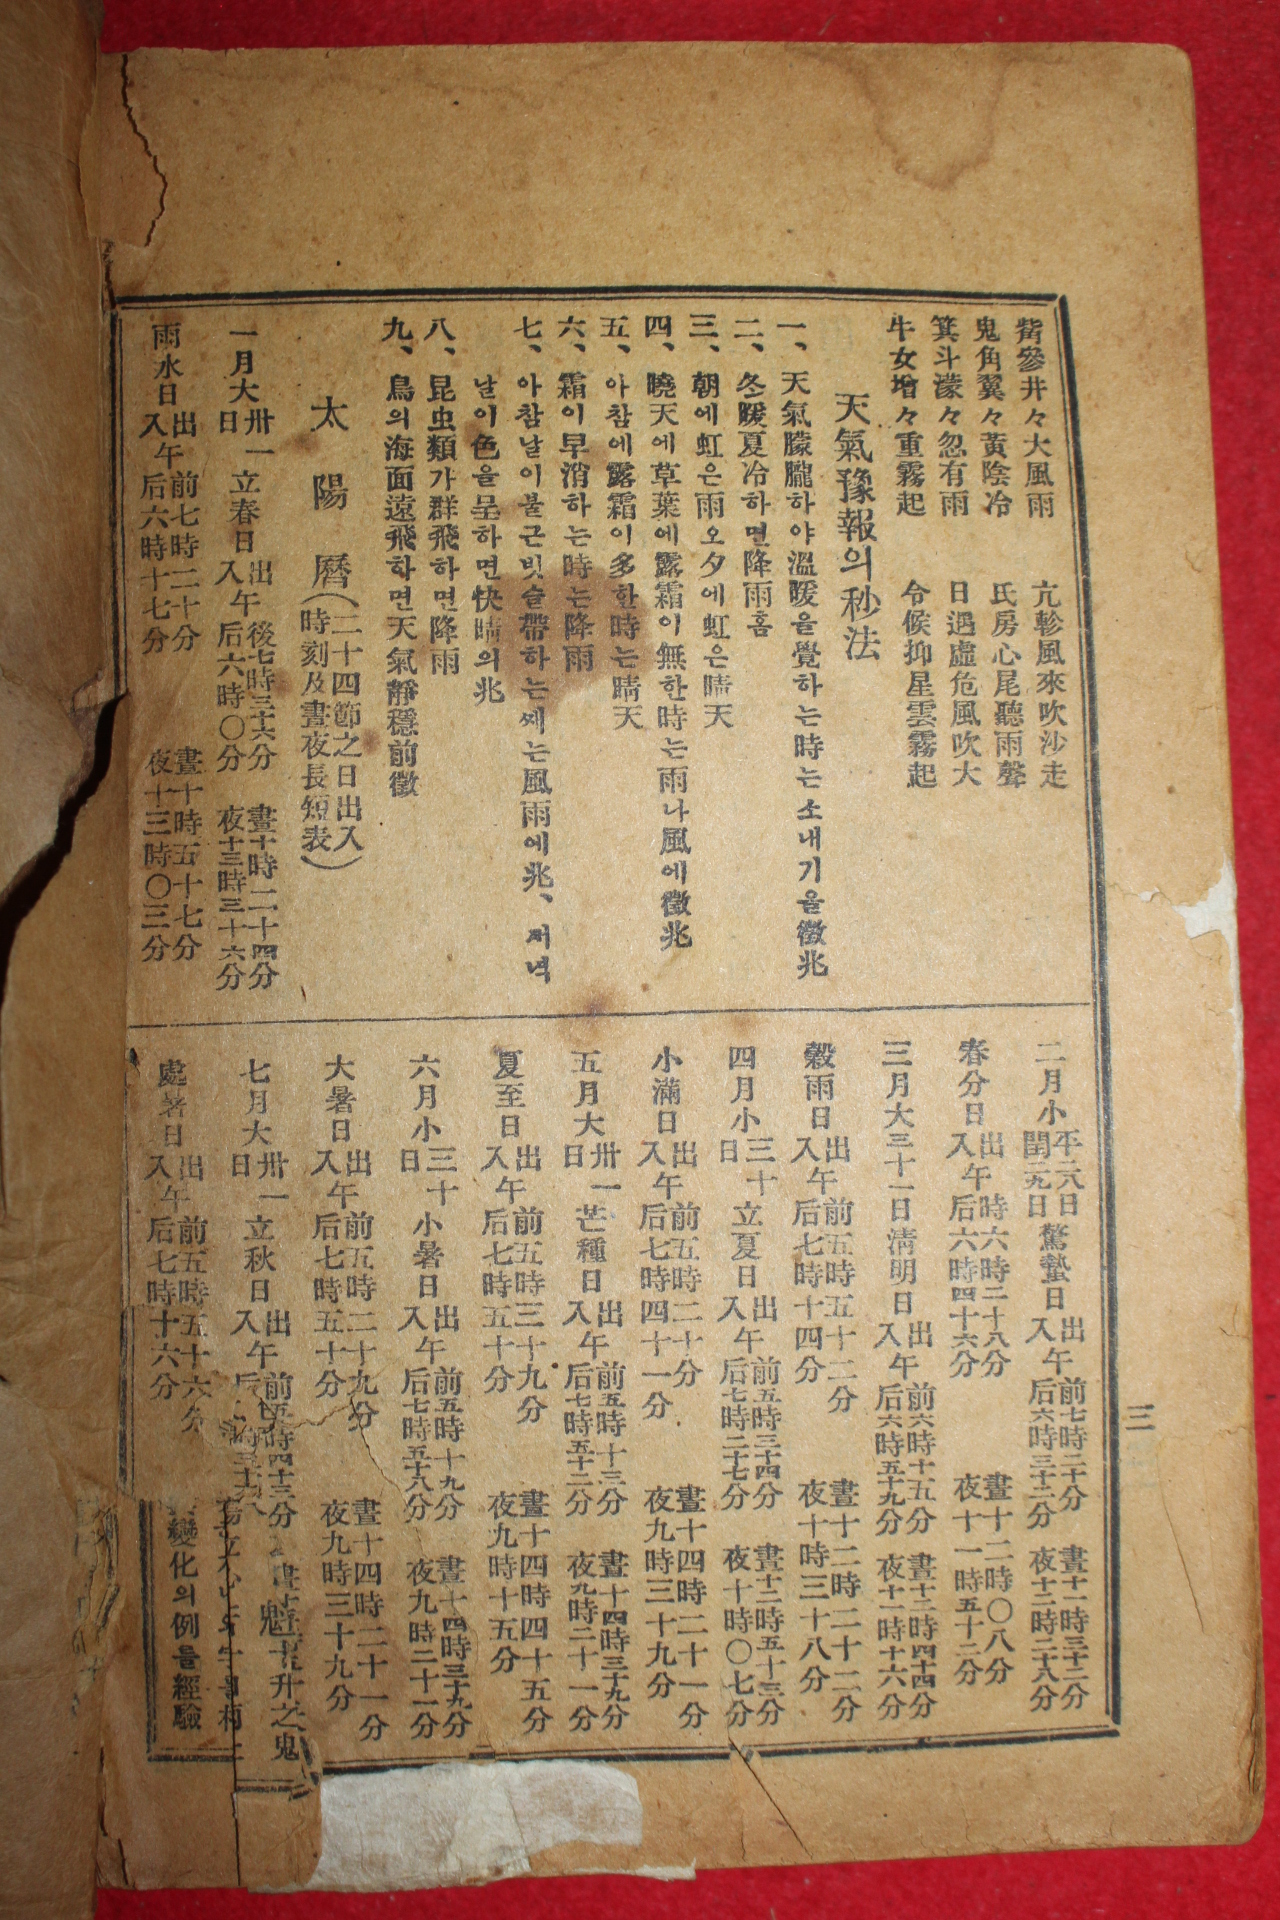 觜參井々大風雨 亢軫風來吹沙走
鬼角翼々黃陰冷 氐房心尾聽雨聲
箕斗濛々忽有雨 日遇虛危風吹大
牛女增々重霧起 令候抑星雲霧起
天氣豫報의秒法
一、天氣朦朧하야溫暖을覺하는時는소내기을徵兆
二、冬暖夏冷하면降雨홈
三、朝에虹은雨오夕에虹은晴天
四、曉天에草葉에露霜이無한時는雨나風에徵兆
五、아참에露霜이多한時는晴天
六、霜이早消하는時는降雨
七、아참날이불근빗슬帶하는ᄶᅦ는風雨에兆、저녁
날이色을呈하면快晴의兆
八、昆虫類가群飛하면降雨
九、鳥의海面遠飛하면天氣靜穩前徵
太陽曆(二十四節之日出入
時刻及晝夜長短表)
一月大卅一日 立春日 出午後七時三十六分 入午后六時〇分 晝十時二十四分 夜十三時三十六分
雨水日 出午前七時二十分 入午后六時十七分 晝十時五十七分 夜十三時〇三分
二月小平二八日閏二九日 驚蟄日 出午前七時二十分 入午后六時三十二分 晝十一時三十二分 夜十二時二十八分
春分日 出午時六時三十八分 入午后六時四十六分 晝十二時〇八分 夜十一時五十二分
三月大三十一日淸明日 出午前六時十五分 入午后六時五十九分 晝十二時四十四分 夜十一時十六分
穀雨日 出午前五時五十二分 入午后七時十四分 晝十二時二十二分 夜十時三十八分
四月小三十日 立夏日 出午前五時三十四分 入午后七時二十七分 晝十三時五十三分 夜十時〇七分
小滿日 出午前五時二十分 入午后七時四十一分 晝十四時二十一分 夜九時三十九分
五月大卅一日 芒種日 出午前五時十三分 入午后七時五十二分 晝十四時三十九分 夜九時二十一分
夏至日 出午前五時三十九分 入午后七時五十分 晝十四時四十五分 夜九時十五分
六月小三十日 小暑日 出午前五時十九分 入午后七時五十八分 晝十四時三十九分 夜九時二十一分
大暑日 出午前五時二十九分 入午后七時五十分 晝十四時二十一分 夜九時三十九分
七月大卅一日 立秋日 出午前五時四十三分 入午
處暑日 出午前五時五十六分 入午后七時十六分
魁 升之鬼
變化의例을經驗
三